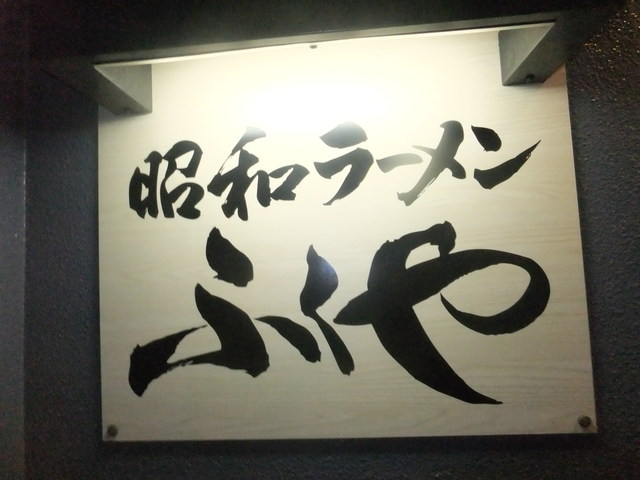 昭和ラーメン
ふくや